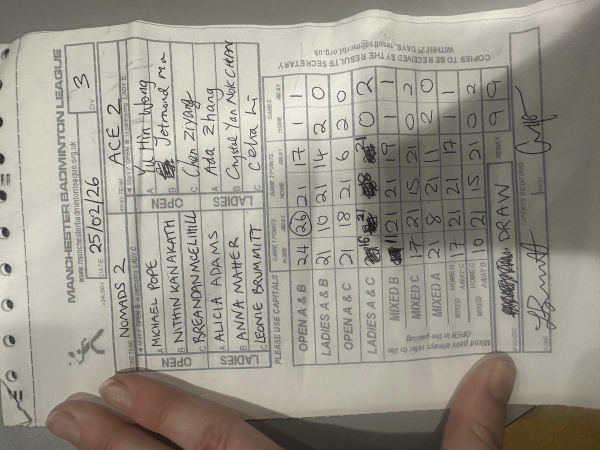 MANCHESTER BADMINTON LEAGUE
www.manchesterbadminton.org.uk
DATE 25/02/26 DIV 3
HOME TEAM NOMADS 2
AWAY TEAM ACE 2
OPEN
A MICHAEL POPE
B NITHIN KANAKATH
C BREANDAN MCELHILL
LADIES
A ALICIA ADAMS
B ANNA MAHER
C LEONIE BRUMMITT
OPEN
A Yu Hin Wong
B Jetmond Ma
C Chen Ziyang
LADIES
A Ada Zhang
B Crystal Yan Nok CHAN
C Celia Li
PLEASE USE CAPITALS
GAME 1 POINTS GAME 2 POINTS GAMES
HOME AWAY HOME AWAY HOME AWAY
OPEN A & B 24 26 21 17 1 1
LADIES A & B 21 10 21 14 2 0
OPEN A & C 21 18 21 6 2 0
LADIES A & C 16 21 8 21 0 2
MIXED B 11 21 21 19 1 1
MIXED C 17 21 15 21 0 2
MIXED A 21 8 21 11 2 0
MIXED HOME B AWAY C 17 21 21 17 1 1
MIXED HOME C AWAY B 10 21 15 21 0 2
Mixed pairs always refer to the OPEN in the pairing
DRAW
RESULT 9 9
CAPTAIN'S SIGNATURES
HOME
AWAY
COPIES TO BE RECEIVED BY THE RESULTS SECRETARY
WITHIN 21 DAYS, results@mcrbl.org.uk